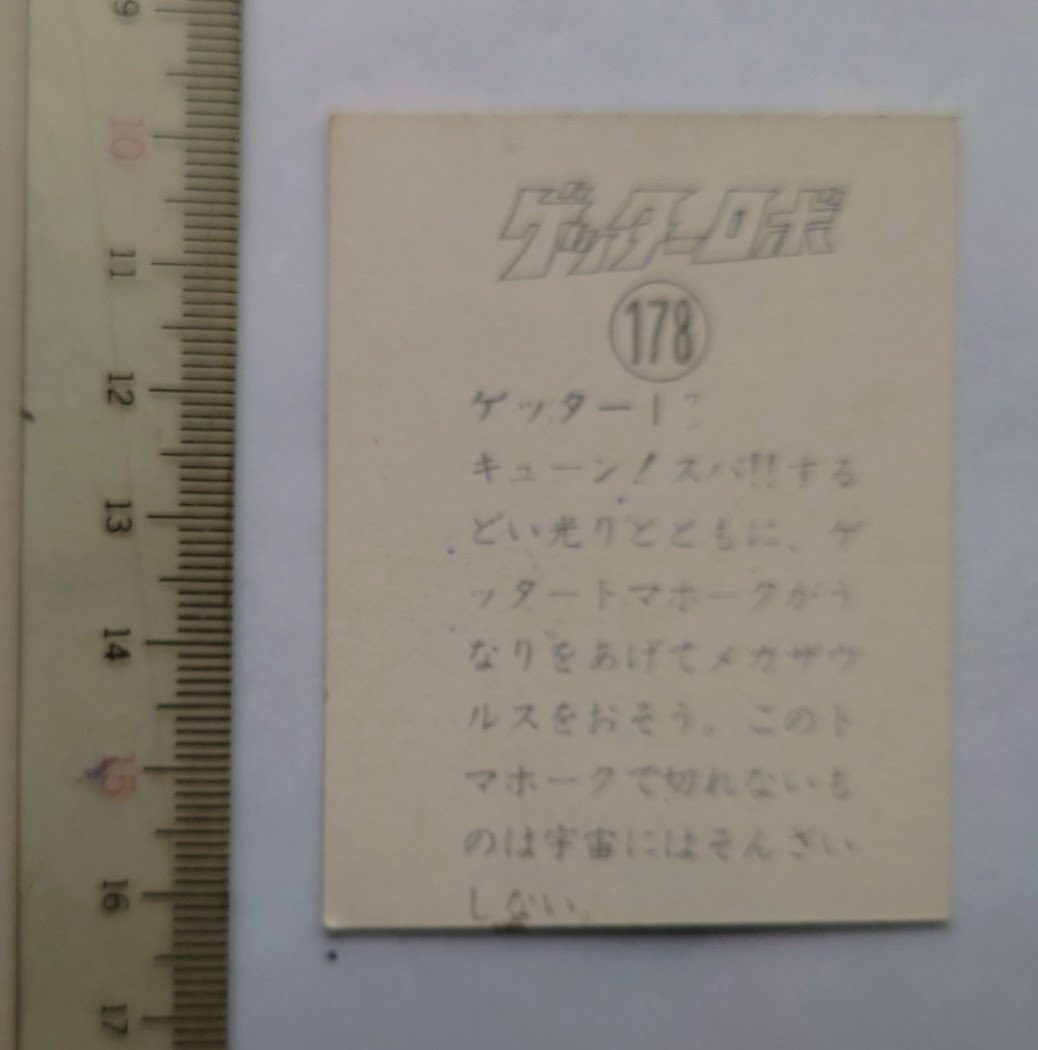 9
10
11
12
13
14
15
16
17
ゲッターロボ
178
ゲッター1
キューン!スバ!!する
どい光りとともに、ゲ
ッタートマホークがう
なりをあげてメカザウ
ルスをおそう。このト
マホークで切れないも
のは宇宙にはそんざい
しない。